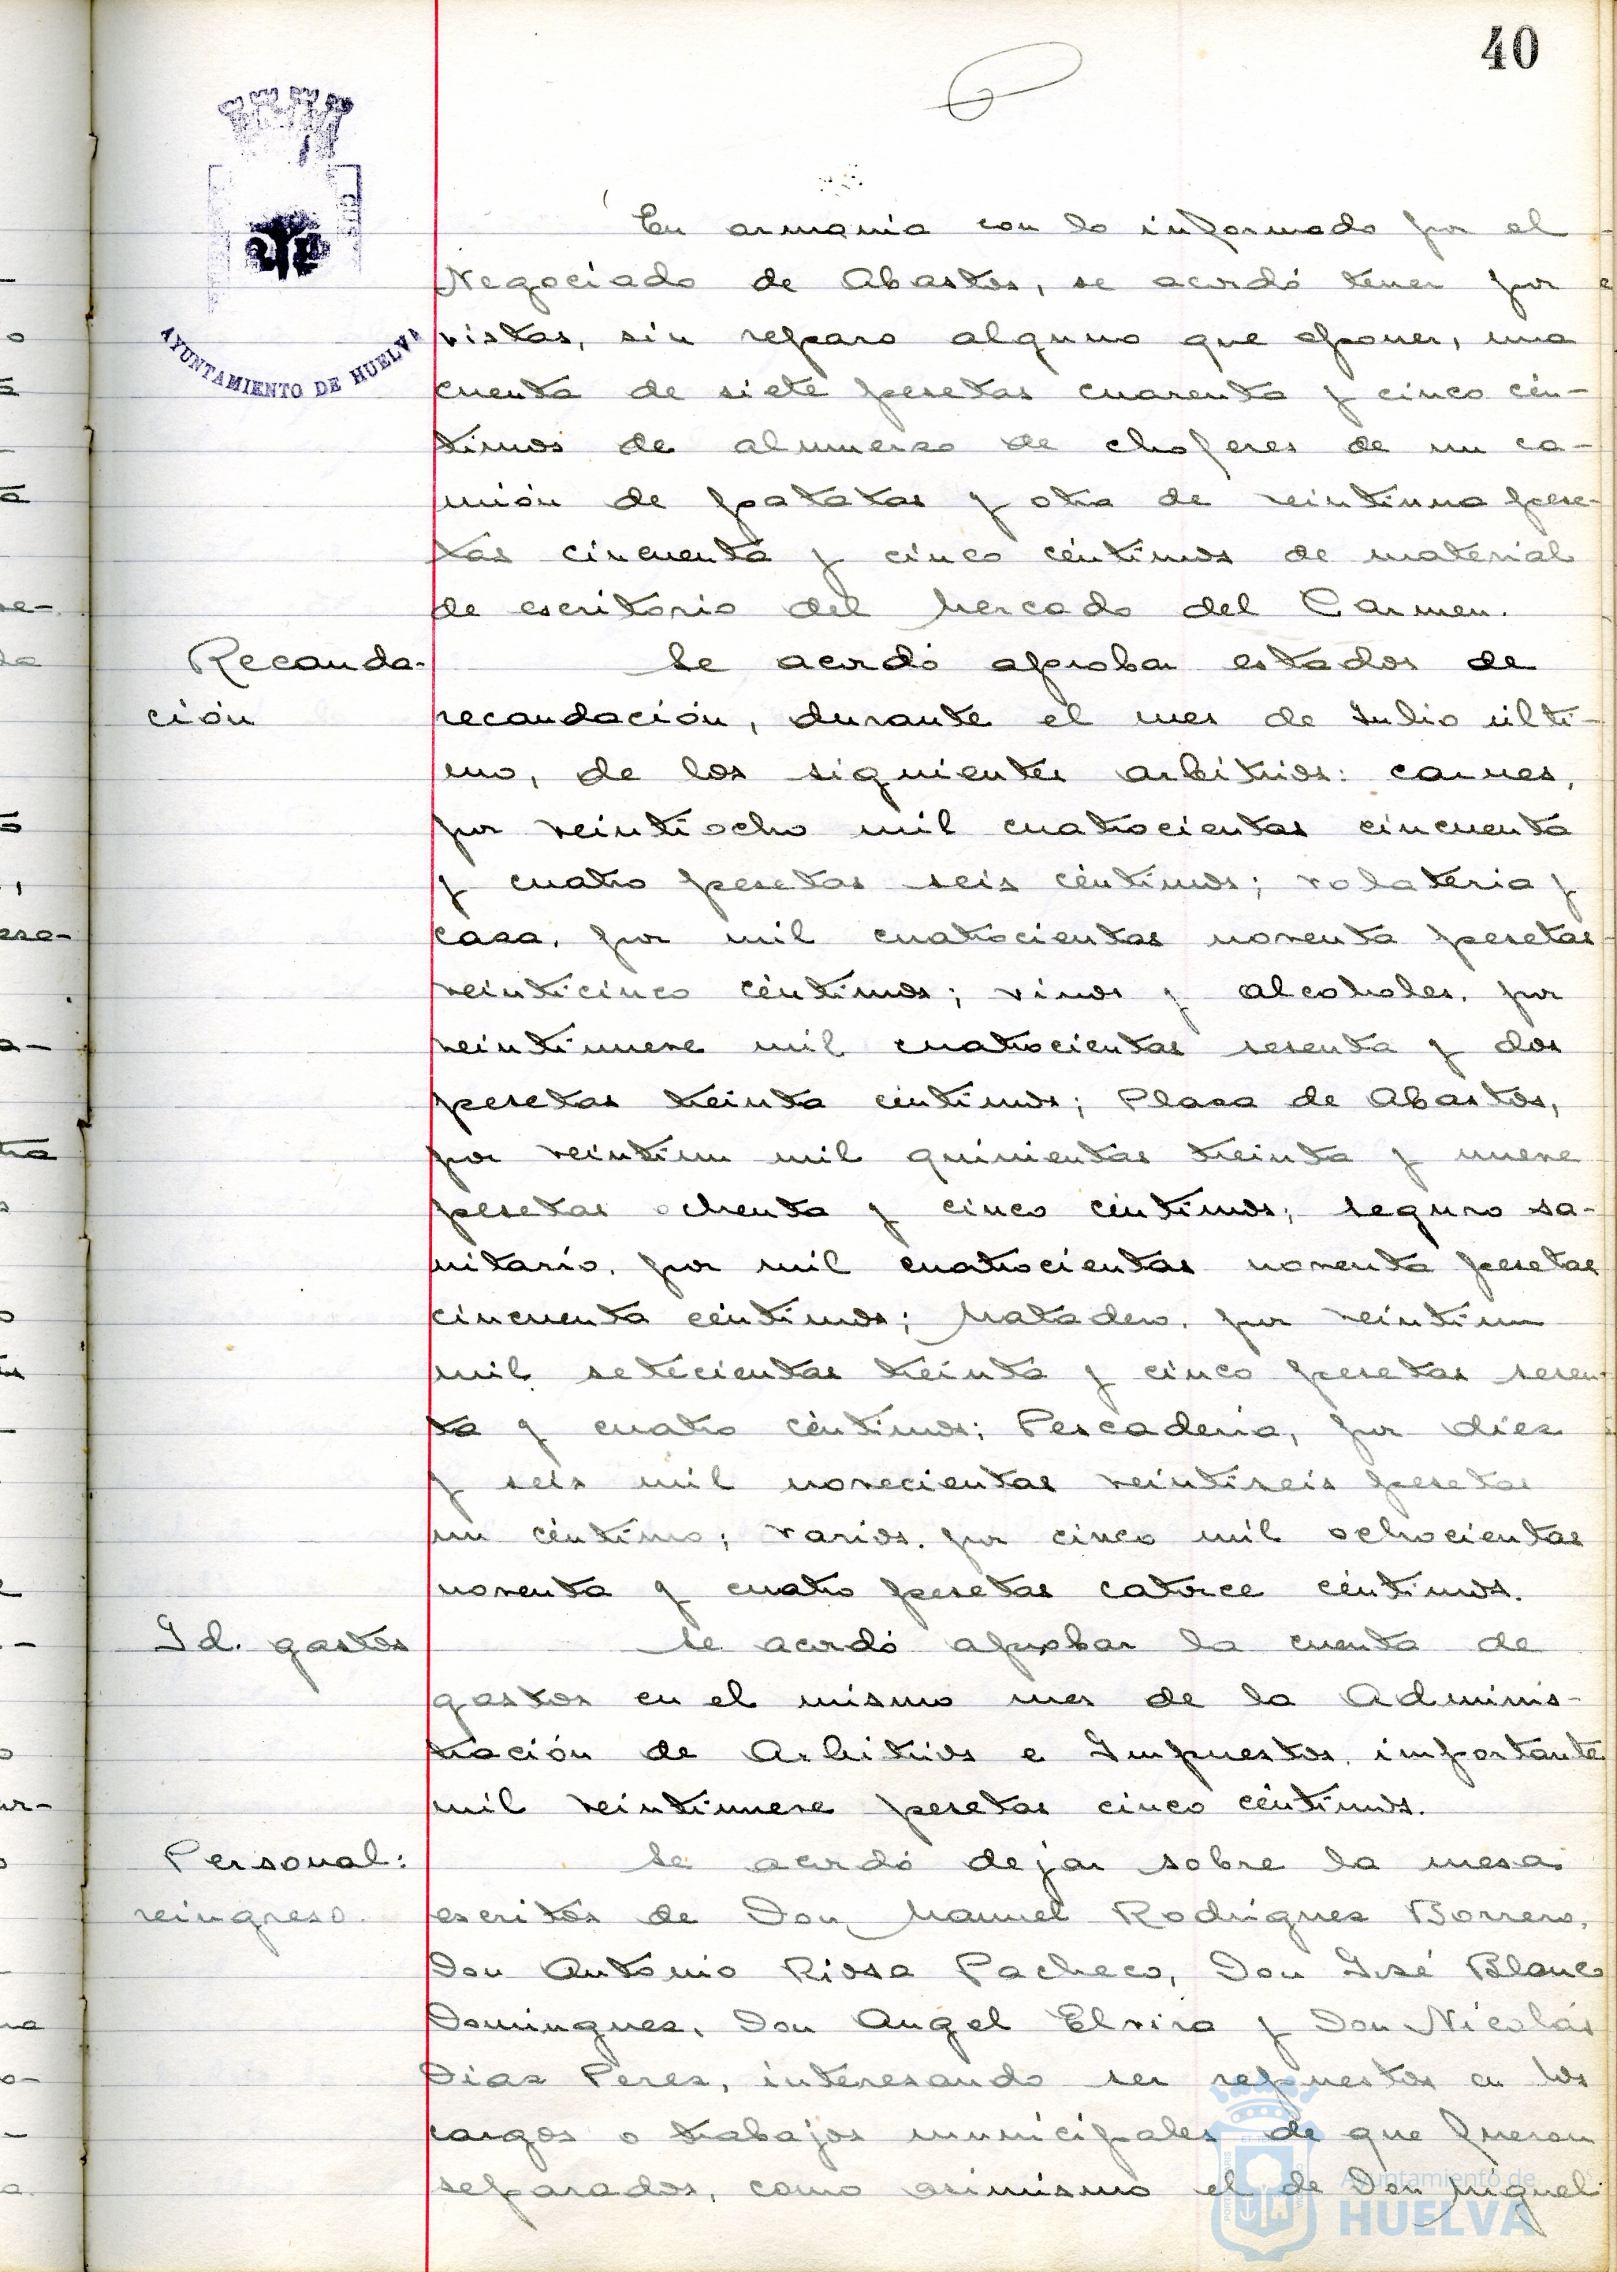 40
AYUNTAMIENTO DE HUELVA
En armonia con lo informado por el
Negociado de Abastos, se acordó tener por
vistas, sin reparo alguno que oponer, una
cuenta de siete pesetas cuarenta y cinco cén-
timos de almuerzo de choferes de un ca-
mión de patatas y otra de veintiuna pese-
tas cincuenta y cinco céntimos de material
de escritorio del Mercado del Carmen.
Recauda-
ción
Se acordó aprobar estados de
recaudación, durante el mes de Julio últi-
mo, de los siguientes arbitrios: carnes,
por veintiocho mil cuatrocientas cincuenta
y cuatro pesetas seis céntimos; volateria y
caza, por mil cuatrocientas noventa pesetas
veinticinco céntimos; vinos y alcoholes, por
veintinueve mil cuatrocientas sesenta y dos
pesetas treinta céntimos; Plaza de Abastos,
por veintiun mil quinientas treinta y nueve
pesetas ochenta y cinco céntimos; seguro sa-
nitario, por mil cuatrocientas noventa pesetas
cincuenta céntimos; Matadero, por veintiun
mil setecientas treinta y cinco pesetas sesen-
ta y cuatro céntimos; Pescaderia, por diez
y seis mil novecientas veintiseis pesetas
un céntimo; varios, por cinco mil ochocientas
noventa y cuatro pesetas catorce céntimos.
Id. gastos
Se acordó aprobar la cuenta de
gastos en el mismo mes de la Adminis-
tración de Arbitrios e Impuestos, importante
mil veintinueve pesetas cinco céntimos.
Personal:
reingreso.
Se acordó dejar sobre la mesa
escritos de Don Manuel Rodríguez Borrero,
Don Antonio Rioza Pacheco, Don José Blanco
Dominguez, Don Angel Elvira y Don Nicolás
Diaz Perez, interesando ser repuestos en los
cargos o trabajos municipales de que fueron
separados, como asimismo el de Don Miguel
Ayuntamiento de
HUELVA